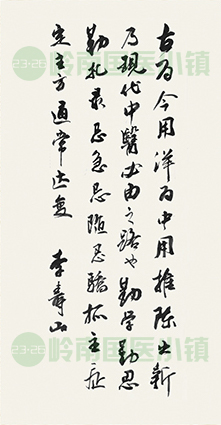 古为今用洋为中用推陈出新
乃现代中医必由之路也勤学勤思
勤礼最忌急忌随忌骄抓主症
定主方通常达变 李寿山
23·26 岭南国医小镇
23·26 岭南国医小镇